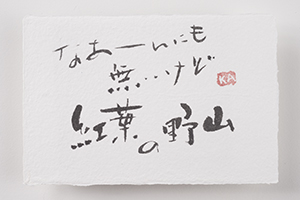 なあーんにも
無…けど
紅葉の野山